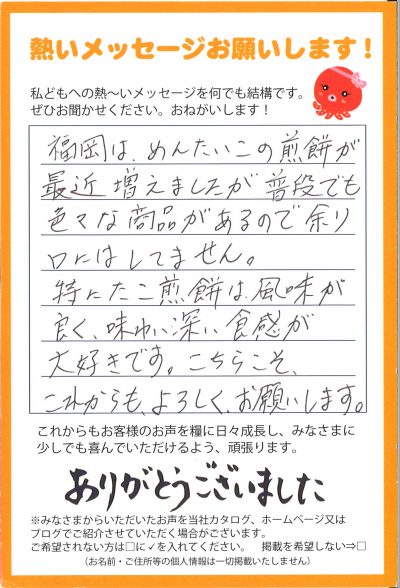 熱いメッセージお願いします！
私どもへの熱〜いメッセージを何でも結構です。
ぜひお聞かせください。おねがいします！
福岡は、めんたいこの煎餅が
最近 増えましたが 普段でも
色々な商品があるので 余り
口にはしてません。
特にたこ煎餅は、風味が
良く、味わい深い 食感が
大好きです。こちらこそ、
これからも、よろしく、お願いします。
これからもお客様のお声を糧に日々成長し、みなさまに
少しでも喜んでいただけるよう、頑張ります。
ありがとうございました
※みなさまからいただいたお声を当社カタログ、ホームページ又は
ブログでご紹介させていただく場合がございます。
ご希望されない方は□に✓を入れてください。 掲載を希望しない⇒□
（お名前・ご住所等の個人情報は一切掲載いたしません）